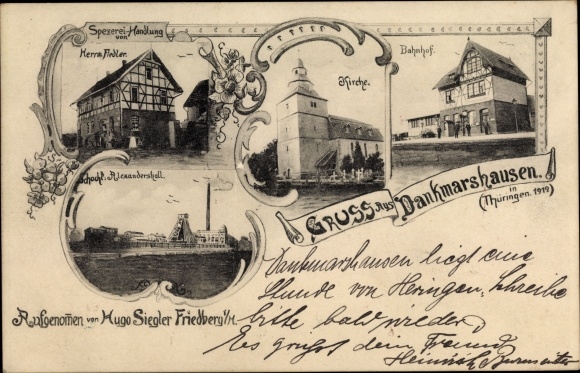 Spezerei-Handlung
von
Herrm. Fiedler.
Kirche.
Bahnhof.
Schacht Alexandershall.
Gruss aus Dankmarshausen.
in
(Thüringen. 1912)
Aufgenomen von Hugo Siegler Friedberg i/H.
Dankmarshausen liegt eine
Stunde von Heringen, Schreibe
bitte bald wieder,
Es grüsst dein Freund
Heinrich